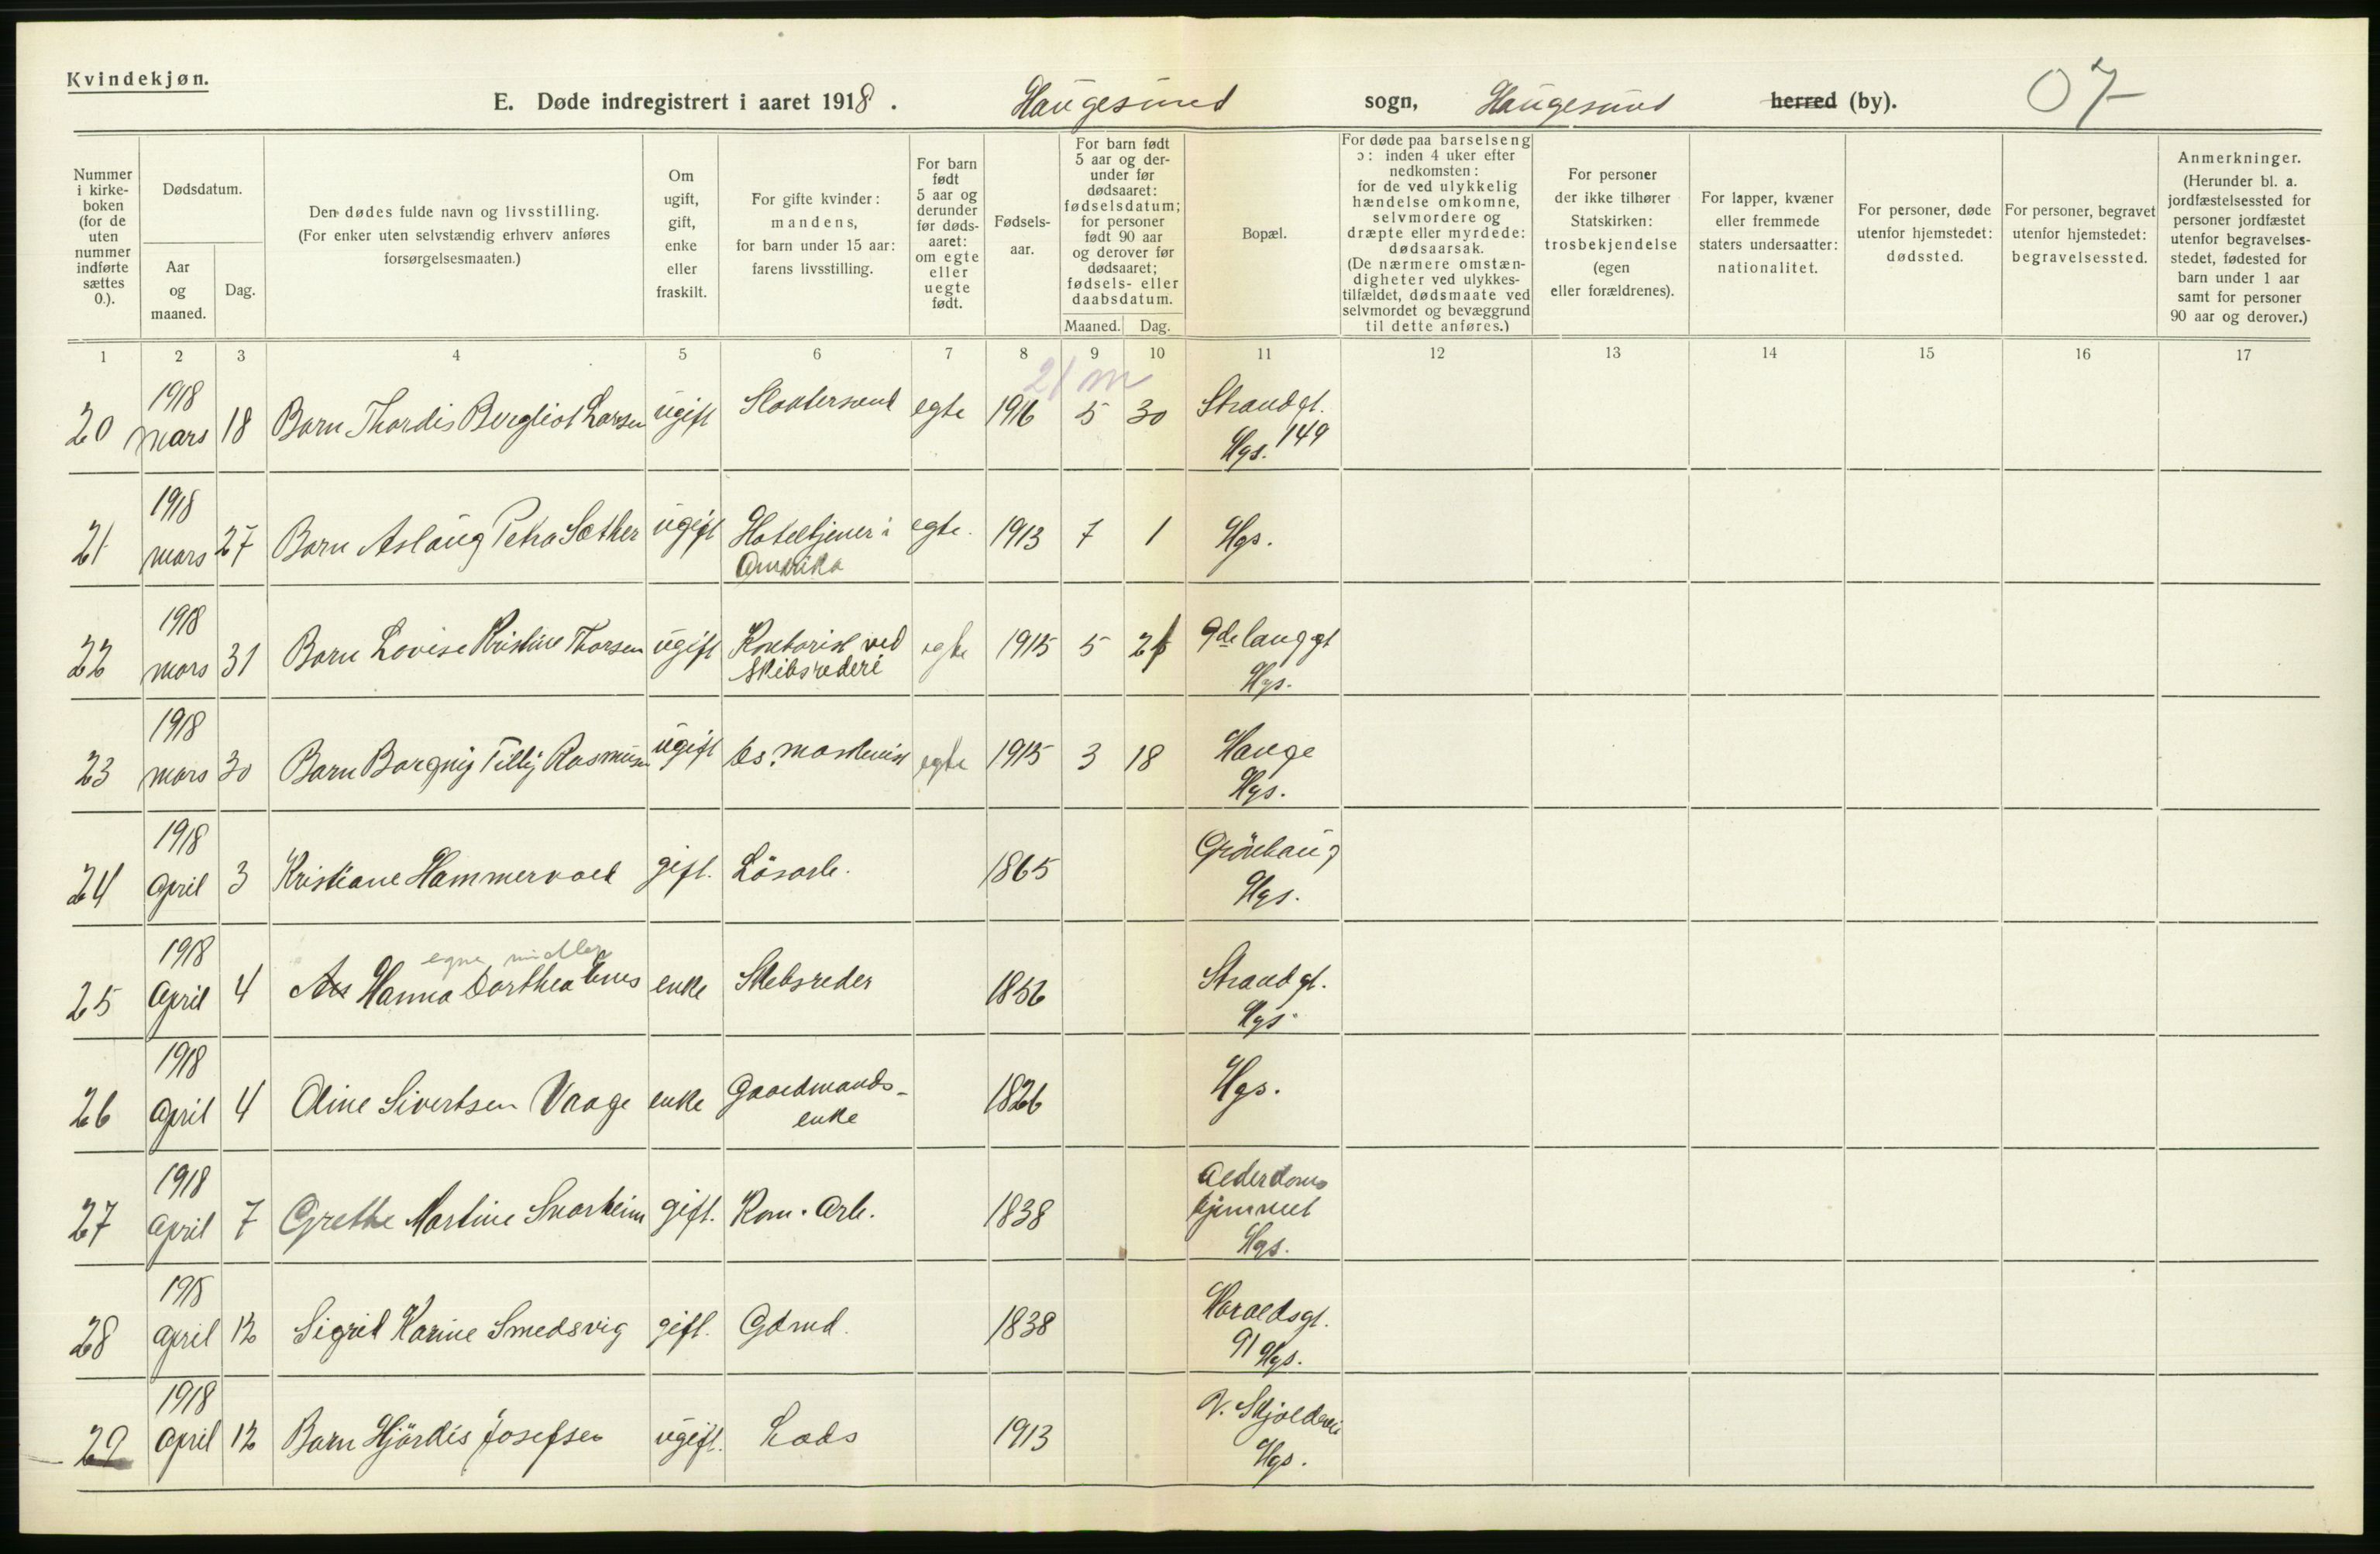 Kvindekjøn.
E. Døde indregistrert i aaret 1918. Haugesund sogn, Haugesund herred (by). 07
Nummer i kirkeboken (for de uten nummer indførte sættes 0.).
Dødsdatum.
Aar og maaned.
Dag.
Den dødes fulde navn og livsstilling.
(For enker uten selvstændig erhverv anføres forsørgelsesmaaten.)
Om ugift, gift, enke eller fraskilt.
For gifte kvinder: mandens, for barn under 15 aar: farens livsstilling.
For barn født 5 aar og derunder før dødsaaret: om egte eller uegte født.
Fødselsaar.
For barn født 5 aar og derunder før dødsaaret: fødselsdatum; for personer født 90 aar og derover før dødsaaret; fødsels- eller daabsdatum.
Maaned. Dag.
Bopæl.
For døde paa barselseng ɔ: inden 4 uker efter nedkomsten: for de ved ulykkelig hændelse omkomne, selvmordere og dræpte eller myrdede: dødsaarsak.
(De nærmere omstændigheter ved ulykkestilfældet, dødsmaate ved selvmordet og bevæggrund til dette anføres.)
For personer der ikke tilhører Statskirken: trosbekjendelse (egen eller forældrenes).
For lapper, kvæner eller fremmede staters undersaatter: nationalitet.
For personer, døde utenfor hjemstedet: dødssted.
For personer, begravet utenfor hjemstedet: begravelsessted.
Anmerkninger.
(Herunder bl. a. jordfæstelsessted for personer jordfæstet utenfor begravelsesstedet, fødested for barn under 1 aar samt for personer 90 aar og derover.)
1 2 3 4 5 6 7 8 9 10 11 12 13 14 15 16 17
21 m
20 1918 mars 18 Barn Thordis Bergliot Larsen ugift egte 1916 5 30 Strandgt. 149 Hgs.
21 1918 mars 27 Barn Aslaug Petra Sæther ugift Hoteltjener i Amerika egte. 1913 7 1 Hgs.
22 1918 mars 31 Barn Lovise Kristine Thorsen ugift Kontorist ved Skibsrederi egte 1915 5 Hgs.
23 1918 mars 30 Barn Borgny Tilly Rasmussen ugift maskinist egte 1915 3 18 Hauge Hgs.
24 1918 April 3 Kristiane Hammervold gift. Lösarb. 1865 Grönhaug Hgs.
egne midler
25 1918 April 4 Hanna Dorthea enke Skibsreder Strandgt. Hgs.
26 1918 April 4 Oline Sivertsen Vaage enke Gaardmandsenke 1826 Hgs.
27 1918 April 7 Grethe Martine gift. Kom. Arb. 1838 Alderdomshjemmet Hgs.
28 1918 April 12 Sigrid Karine Smedsvig gift. Gdmd. 1838 Haraldsgt. 91 Hgs.
29 1918 April 12 Barn Hjördis Josefsen ugift. Lods 1913 Hgs.